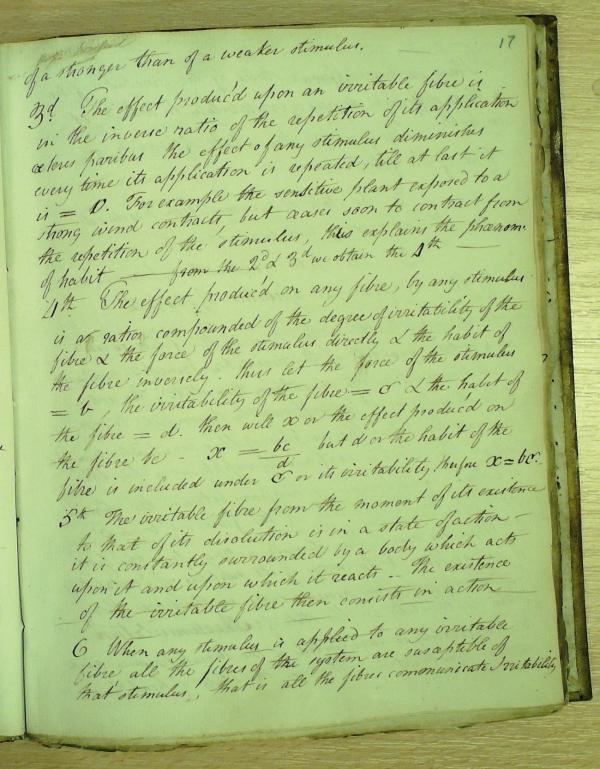 17
of a stronger than of a weaker stimulus.
3d The effect produc'd upon an irritable fibre is
in the inverse ratio of the repetition of its application
cæteris paribus the effect of any stimulus diminishes
every time its application is repeated, till at last it
is = 0. For example the sensitive plant exposed to a
strong wind contracts, but ceases soon to contract from
the repetition of the stimulus, this explains the phœnom:
of habit — from the 2d & 3d we obtain the 4th —
4th The effect produc'd on any fibre, by any stimulus
is a ratio compounded of the degree of irritability of the
fibre & the force of the stimulus directly & the habit of
the fibre inversely. thus let the force of the stimulus
= b, the irritability of the fibre = c & the habit of
the fibre = d. then will x or the effect produc'd on
the fibre be - x = bc/d but d or the habit of the
fibre is included under c or its irritability therefore x = bc.
5th The irritable fibre from the moment of its existence
to that of its disolution is in a state of action —
it is constantly surrounded by a body which acts
upon it and upon which it reacts — The existence
of the irritable fibre then consists in action
6 When any stimulus is applied to any irritable
fibre all the fibres of the system are susceptible of
that stimulus, that is all the fibres communicate Irritability